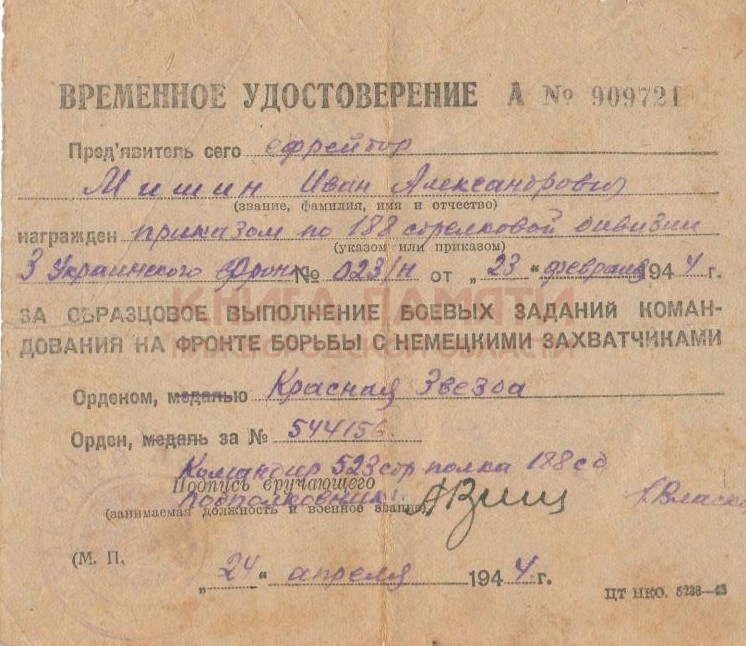 ВРЕМЕННОЕ УДОСТОВЕРЕНИЕ А № 909721
Пред'явитель сего ефрейтор
Мишин Иван Александрович
(звание, фамилия, имя и отчество)
награжден приказом по 188 стрелковой дивизии
(указом или приказом)
3 Украинского фронта № 023/н от „23“ февраля 1944 г.
КНИГА ПАМЯТИ
ЗА ОБРАЗЦОВОЕ ВЫПОЛНЕНИЕ БОЕВЫХ ЗАДАНИЙ КОМАН-
ДОВАНИЯ НА ФРОНТЕ БОРЬБЫ С НЕМЕЦКИМИ ЗАХВАТЧИКАМИ
НИЖЕГОРОДСКОЙ ОБЛАСТИ
Орденом, медалью Красная Звезда
Орден, медаль за № 544156
Командир 523 стр полка 188 сд
Подпись вручающего
подполковник
(занимаемая должность и военное звание)
(М. П.
„24“ апреля 1944 г.
ЦТ НКО. 5238—43